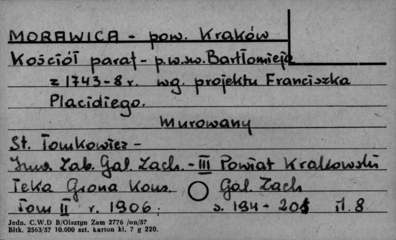 MORAWICA - pow. Kraków
Kościół paraf - p.w.św. Bartłomieja
z 1743-8 r. wg. projektu Franciszka
Placidiego.
Murowany
St. Tomkowicz -
Inw. Zab. Gal. Zach. - III Powiat Krakowski
Teka Grona Kons. Gal. Zach
Tom II r. 1906. s. 194 - 201 il. 8
Jedn. C.W.D B/Olsztyn Zam 2776 /on/57
Bltk. 2563/57 10.000 szt. karton kl. 7 g 220.